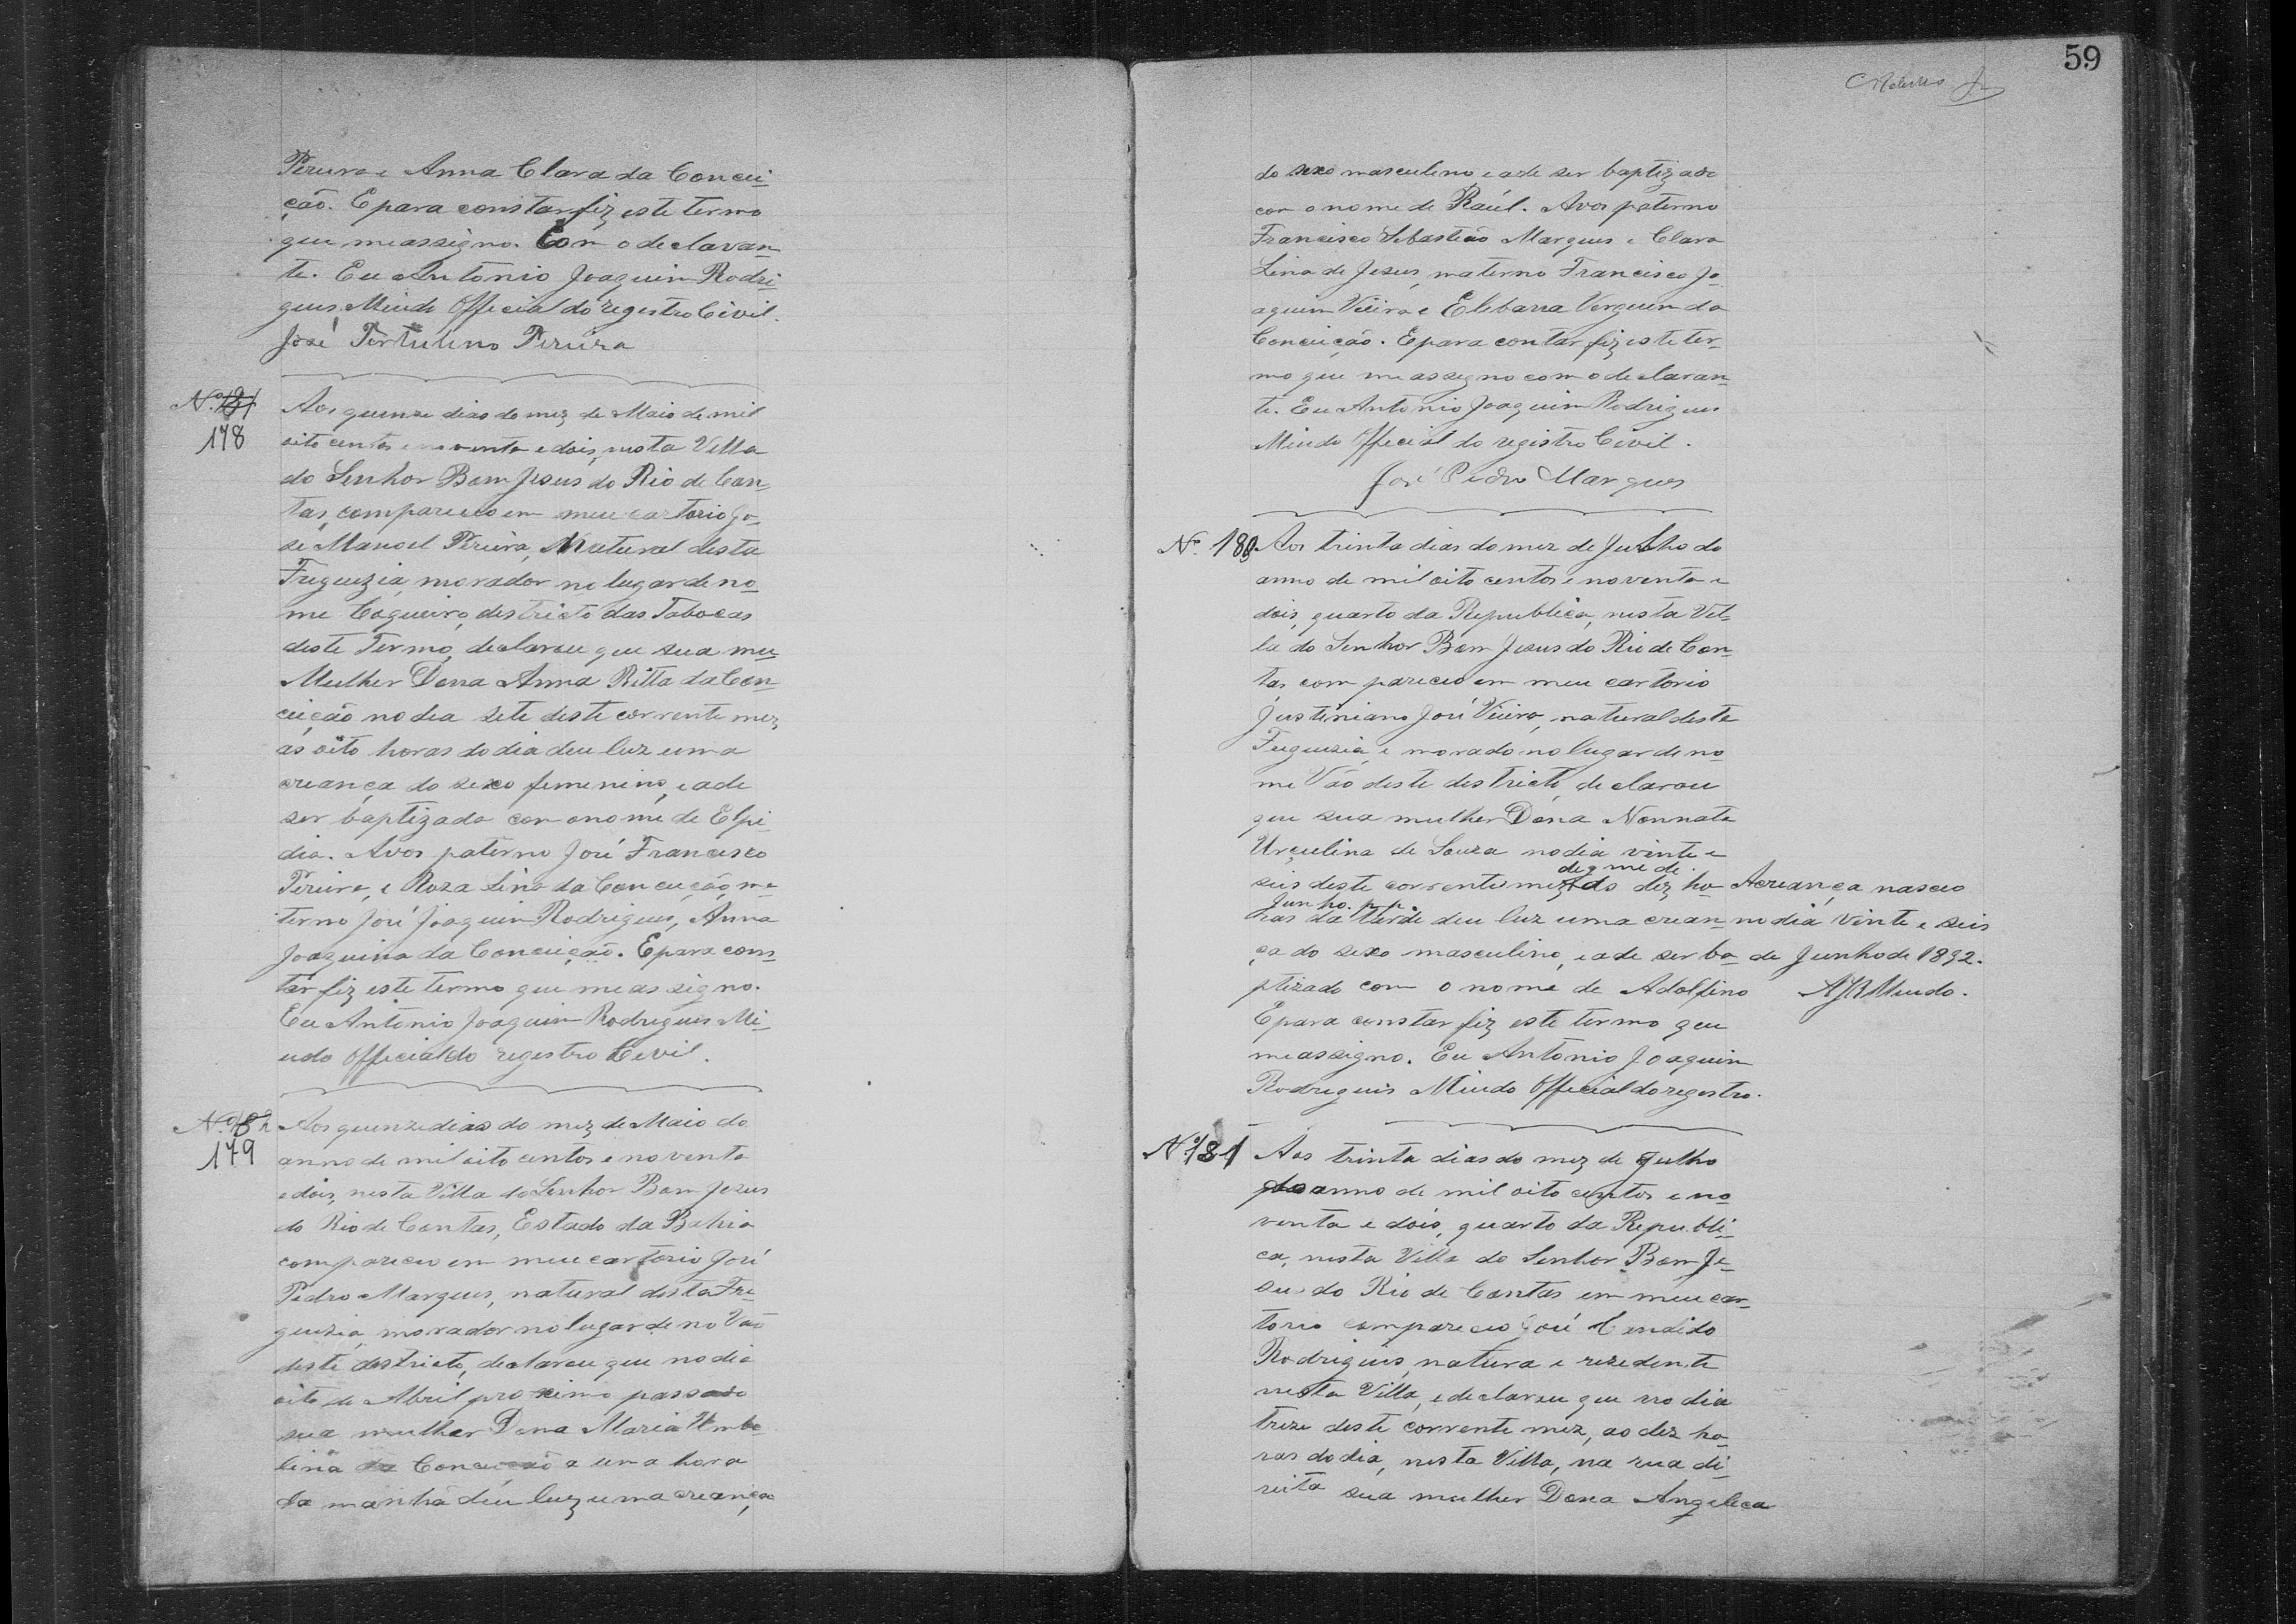 Pereira e Anna Clara da Concei-
ção. E para constar fiz este termo
que me assigno. Com o declaran-
te. Eu Antonio Joaquim Rodri-
gues Miudo Official do registro Civil.
José Tertulino Pereira
N.º 181
178
Aos quinze dias do mez de Maio de mil
oito centos e noventa e dois, nesta Villa
do Senhor Bom Jesus do Rio de Con-
tas, compareceo em meu cartorio Jo-
sé Manoel Pereira, Natural desta
Freguezia, morador no lugar de no-
me Coqueiro, destricto das Tabocas
deste Termo, declarou que sua mu-
Mulher Dona Anna Ritta da Con-
ceição no dia sete deste corrente mez
as oito horas do dia deu luz uma
creança do sexo femenino, e ade
ser baptizada com o nome de Elpi-
dia. Avos paterno José Francisco
Pereira, e Roza Lina da Conceição, ma-
terno José Joaquim Rodrigues, Anna
Joaquina da Conceição. E para cons-
tar fiz este termo que me assigno.
Eu Antonio Joaquim Rodrigues Mi-
udo Official do registro Civil.
N.º 182
179
Aos quinze dias do mez de Maio do
anno de mil oito centos e noventa
e dois, nesta Villa do Senhor Bom Jesus
do Rio de Contas, Estado da Bahia
compareceu em meu cartorio José
Pedro Marques, natural desta Fre-
guezia, morador no lugar de no Vão
deste destricto, declarou que no dia
oito de Abril proximo passado
sua mulher Dona Maria Umbe-
lina da Conceição a uma hora
da manhã deu luz uma creança,
59
do sexo masculino e ade ser baptizado
com o nome de Raúl. Avos paterno
Francisco Sebastião Marques e Clara
Lina de Jesus, materno Francisco Jo-
aquim Vieira e Elebana Vergem da
Conceição. E para contar fiz este ter-
mo que me assigno com o declaran-
te. Eu Antonio Joaquim Rodrigues
Miudo Official do registro Civil.
José Pedro Marques
N.º 180
Aos trinta dias do mez de Julho do
anno de mil oito centos e noventa e
dois, quarto da Republica, nesta Vil-
la do Senhor Bom Jesus do Rio de Con-
tas compareceo em meu cartorio
Justiniano José Vieira, natural desta
Freguezia, e morado no lugar de no-
me Vão deste destricto, declarou
que sua mulher Dona Nonnata
Urçulina de Souza no dia vinte e
digo me de
seis deste corrente mez, ás dez ho-
Junho. p. p.
ras da tarde deu luz uma crean-
ça do sexo masculino, e ade ser ba-
ptizado com o nome de Adolfino
E para constar fiz este termo que
me assigno. Eu Antonio Joaquim
Rodrigues Miudo Official do registro.
A creança nasceo
no dia vinte e seis
de Junho de 1892.
AJRMiudo.
N.º 181
Aos trinta dias do mez de Julho
do anno de mil oito centos e no-
venta e dois, quarto da Republi-
ca, nesta Villa do Senhor Bom Je-
sus do Rio de Contas em meu car-
torio compareceo José Candido
Rodrigues, natura e rezedente
nesta Villa, e declarou que no dia
treze deste corrente mez, as dez ho-
ras do dia, nesta Villa, na rua di-
reita sua mulher Dona Angelica